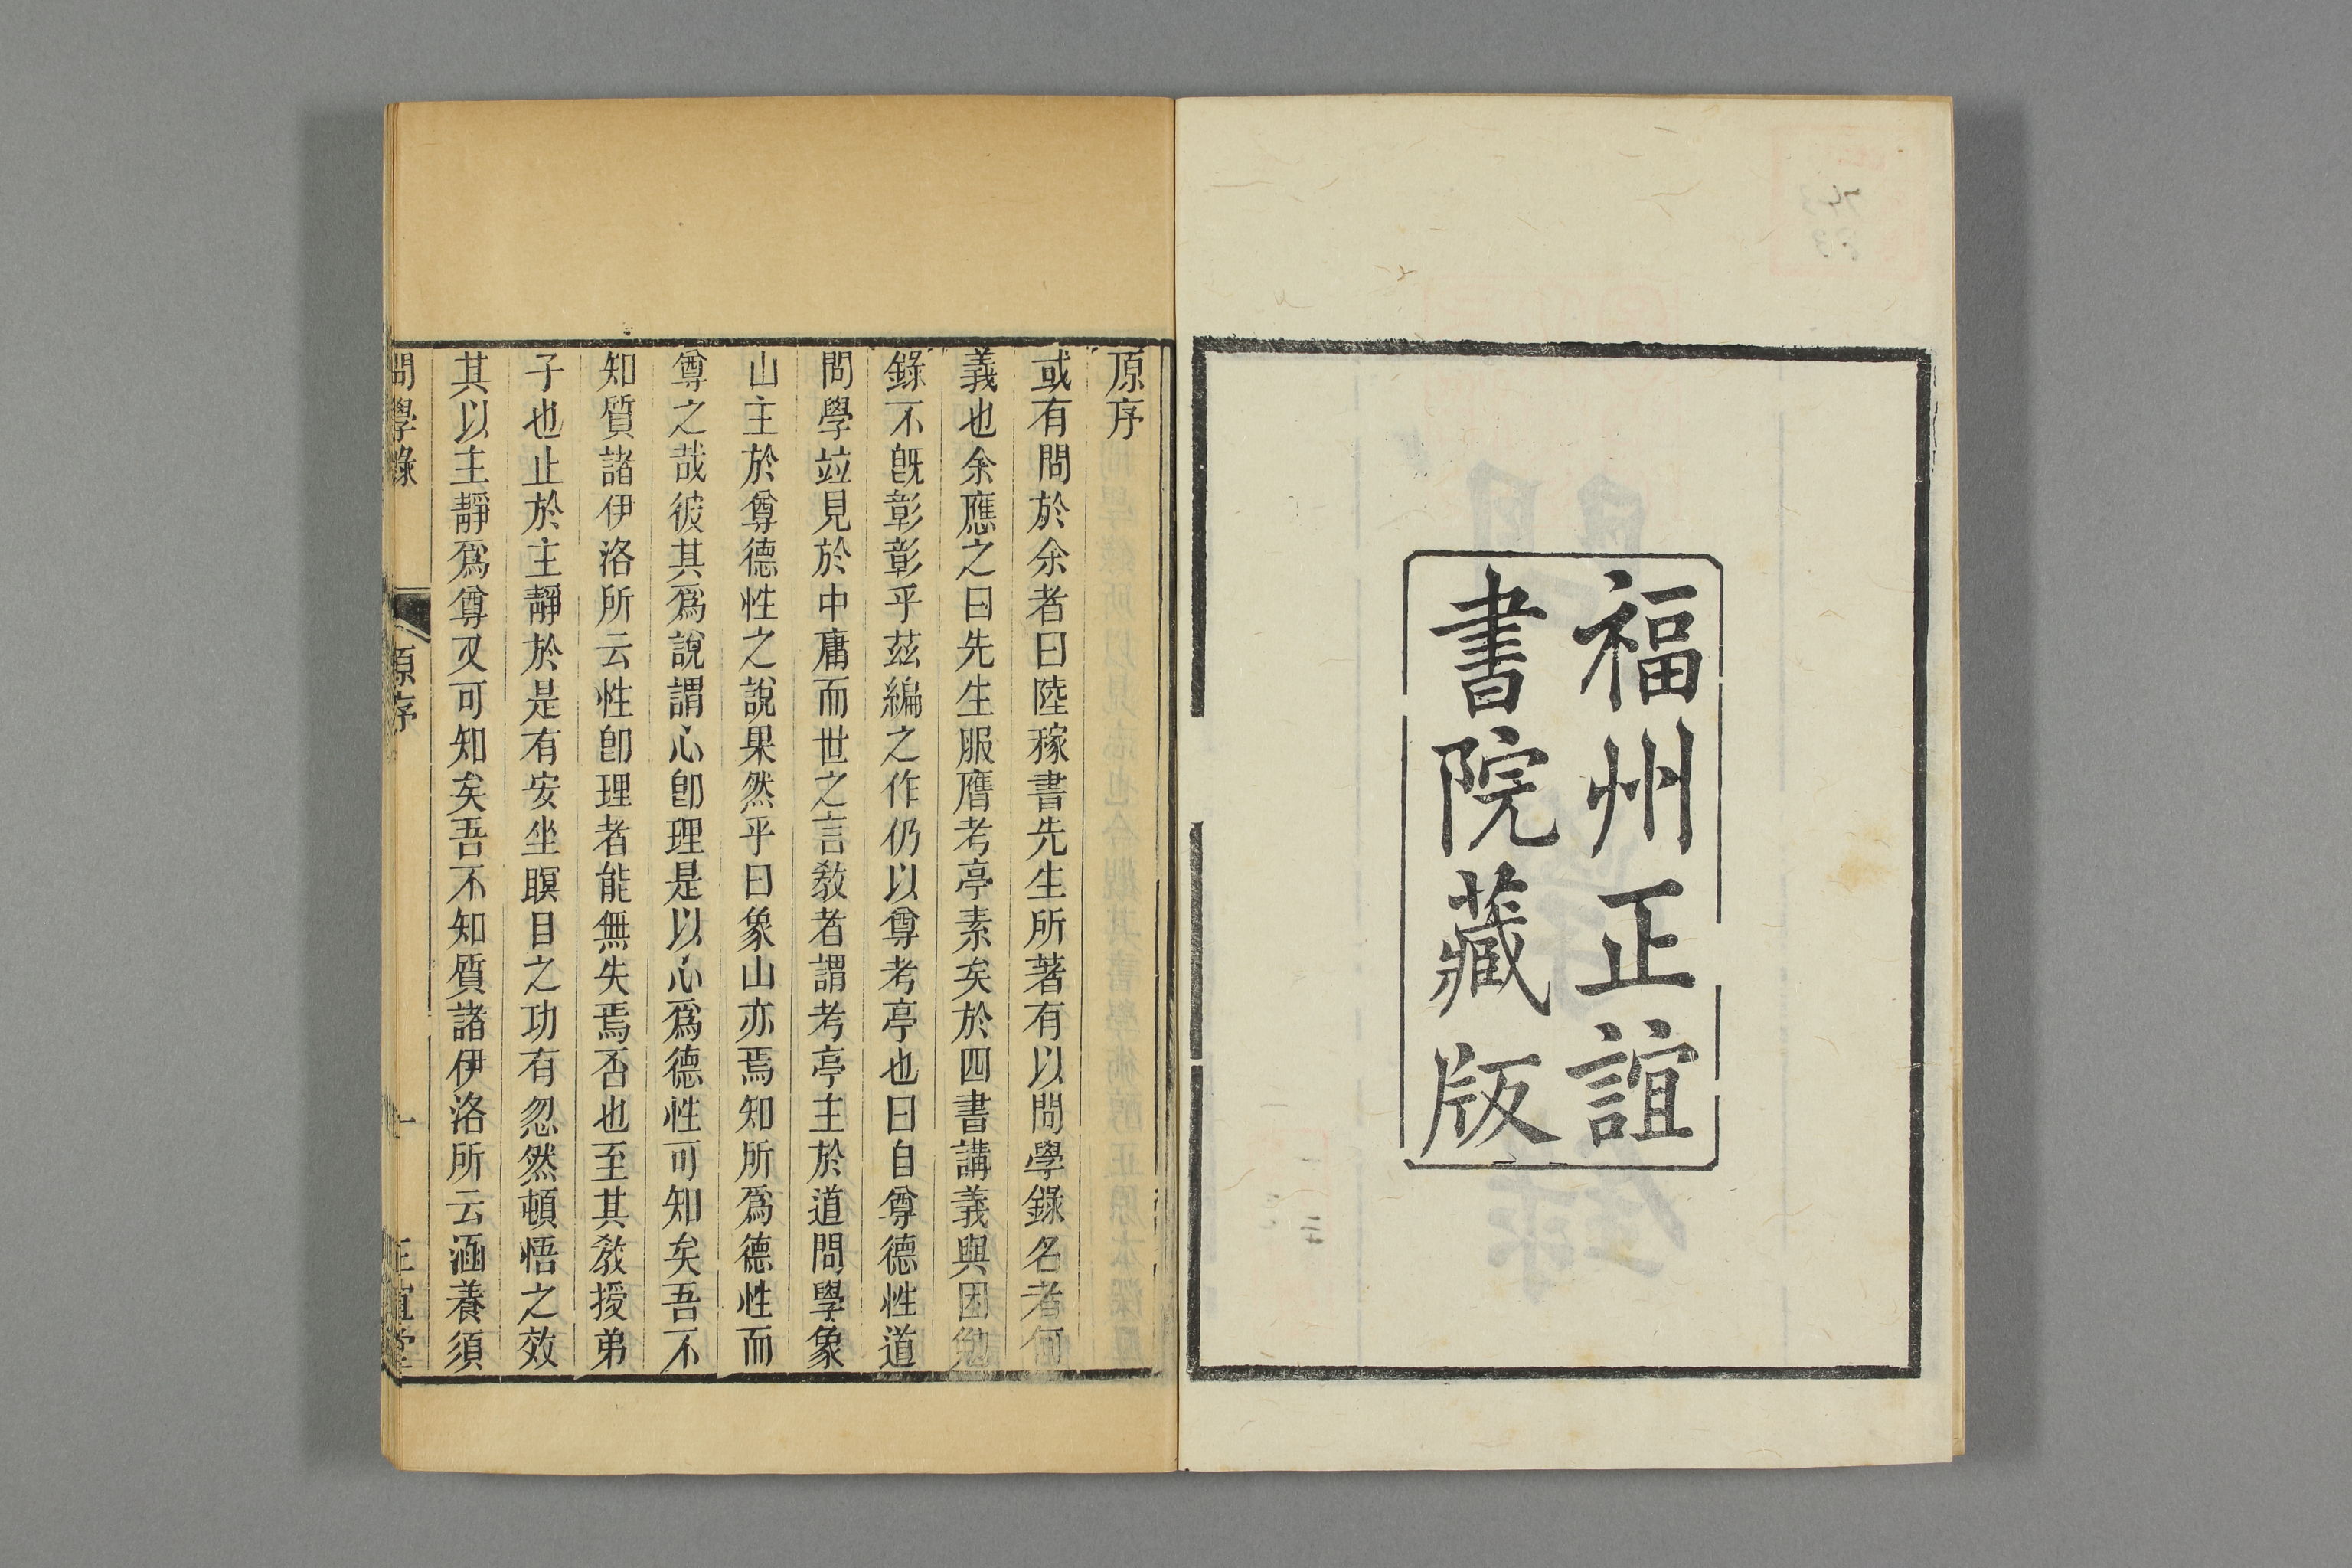 福州正誼
書院藏版
原序
或有問於余者曰陸稼書先生所著有以問學錄名者何
義也余應之曰先生服膺考亭素矣於四書講義與困勉
錄不旣彰彰乎茲編之作仍以尊考亭也曰自尊德性道
問學竝見於中庸而世之言敎者謂考亭主於道問學象
山主於尊德性之說果然乎曰象山亦焉知所爲德性而
尊之哉彼其爲說謂心卽理是以心爲德性可知矣吾不
知質諸伊洛所云性卽理者能無失焉否也至其敎授弟
子也止於主靜於是有安坐瞑目之功有忽然頓悟之效
其以主靜爲尊又可知矣吾不知質諸伊洛所云涵養須
問學錄
原序
一
正誼堂